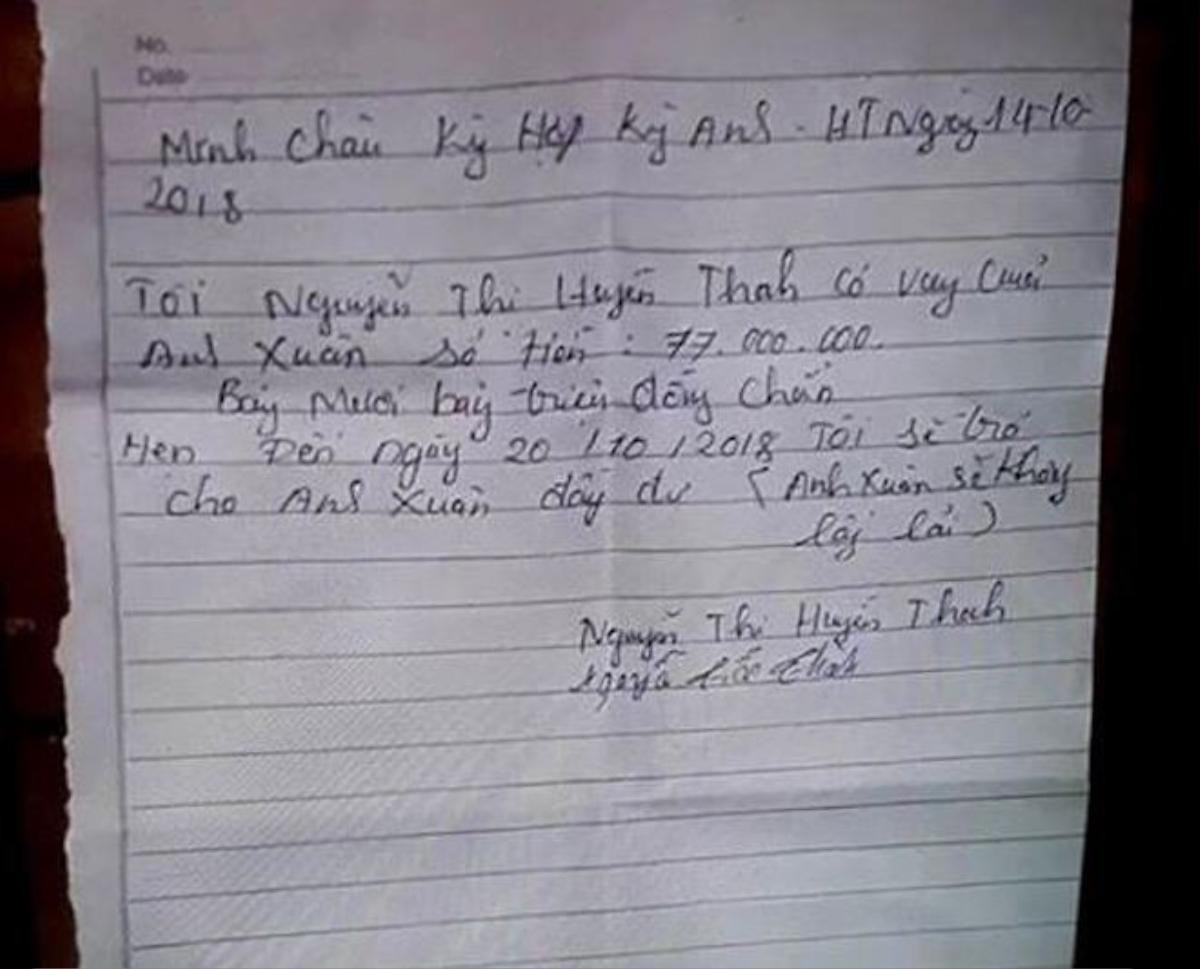 No.
Date
Minh Châu Kỳ Hợp Kỳ Anh - HT Ngày 14-10
2018
Tôi Nguyễn Thi Huyền Thah có vay Cuả
Anh Xuân số tiền : 77.000.000.
Bảy Mươi bảy triệu đồng Chẵn
Hẹn Đến ngày 20/10/2018 Tôi sẽ trả
cho Anh Xuân đầy đủ (Anh Xuân sẽ không
lấy lãi)
Nguyễn Thi Huyền Thah